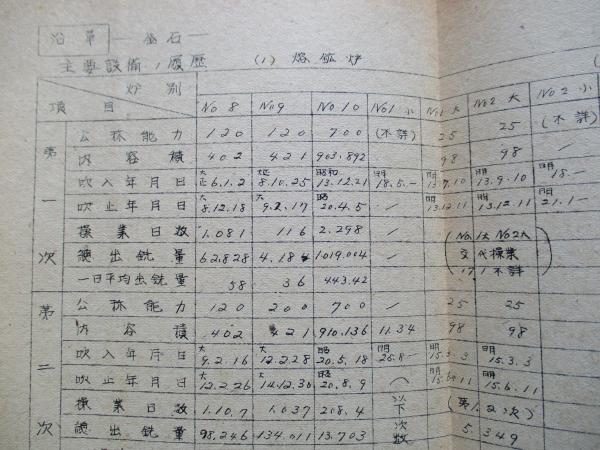 沿革 — 釜石 —
主要設備ノ履歴 (1) 熔鉱炉
炉別 項目 No 8 No 9 No 10 No 1 小 No 1 大 No 2 大 No 2 小
第一次
公称能力 120 120 700 (不詳) 25 25 (不詳)
内容積 402 421 903.892 98 98 /
吹入年月日 大正6.1.2 大正8.10.25 昭和13.12.21 明18.5.- 明13.9.10 明18.-
吹止年月日 大8.12.18 大9.2.17 昭20.4.5 / 明13.12.11 明13.12.11 明21.1-
操業日数 1.081 116 2.298 / (No.1大 No2大
総出銑量 62.828 4.18 1019.004 / 交代操業
一日平均出銑量 58 36 443.42 不詳)
第二次
公称能力 120 200 700 / 25 25
内容積 402 421 910.136 11.34 98 98
吹入年月日 大9.2.16 大12.2.28 昭20.5.18 明15.3.3 明15.3.3
吹止年月日 大12.2.26 大14.12.30 昭20.8.9 明15.6.11
操業日数 1.10.7 1.037 208.4 以下 (第1.2次)
総出銑量 98.246 134.011 13.703 次数 5.349